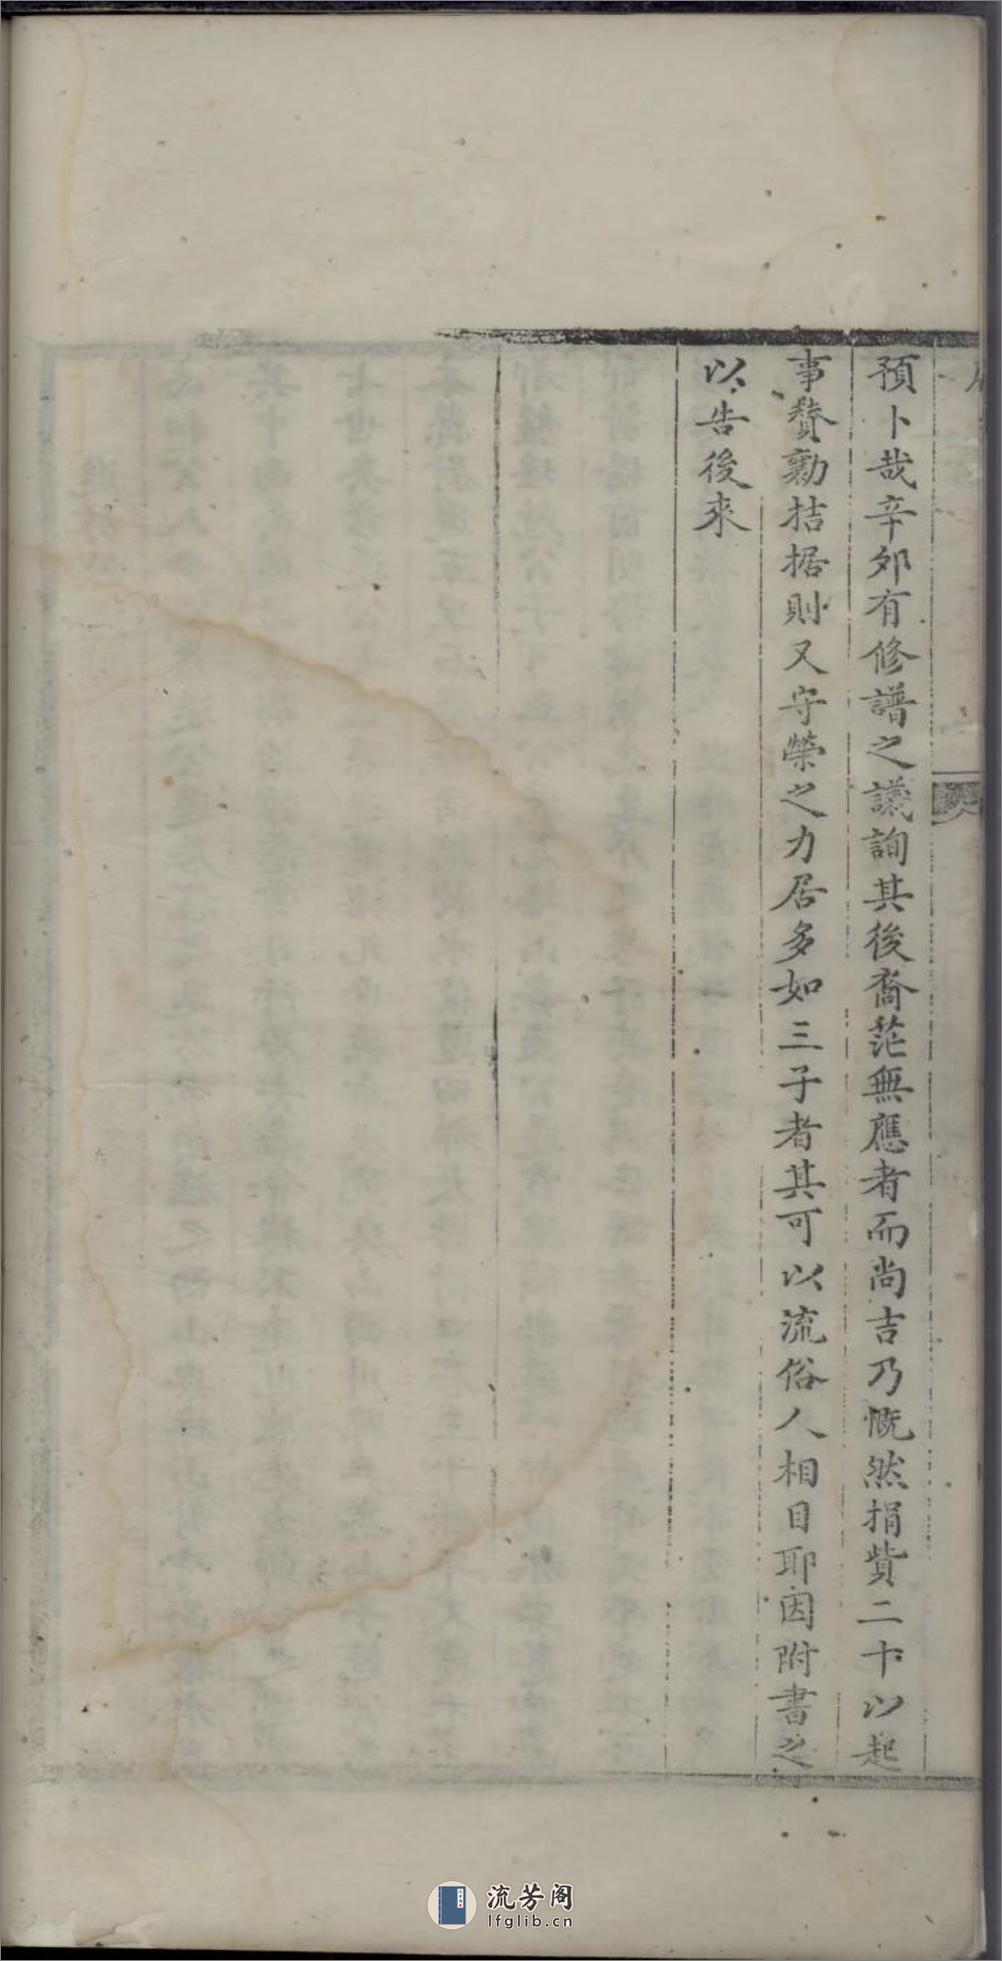 預卜哉辛夘有修譜之議詢其後裔茫無應者而尚吉乃慨然捐貲二十以起
事贊勷拮据則又守榮之力居多如三子者其可以流俗人相目耶因附書之
以告後來
流芳阁
lfglib.cn